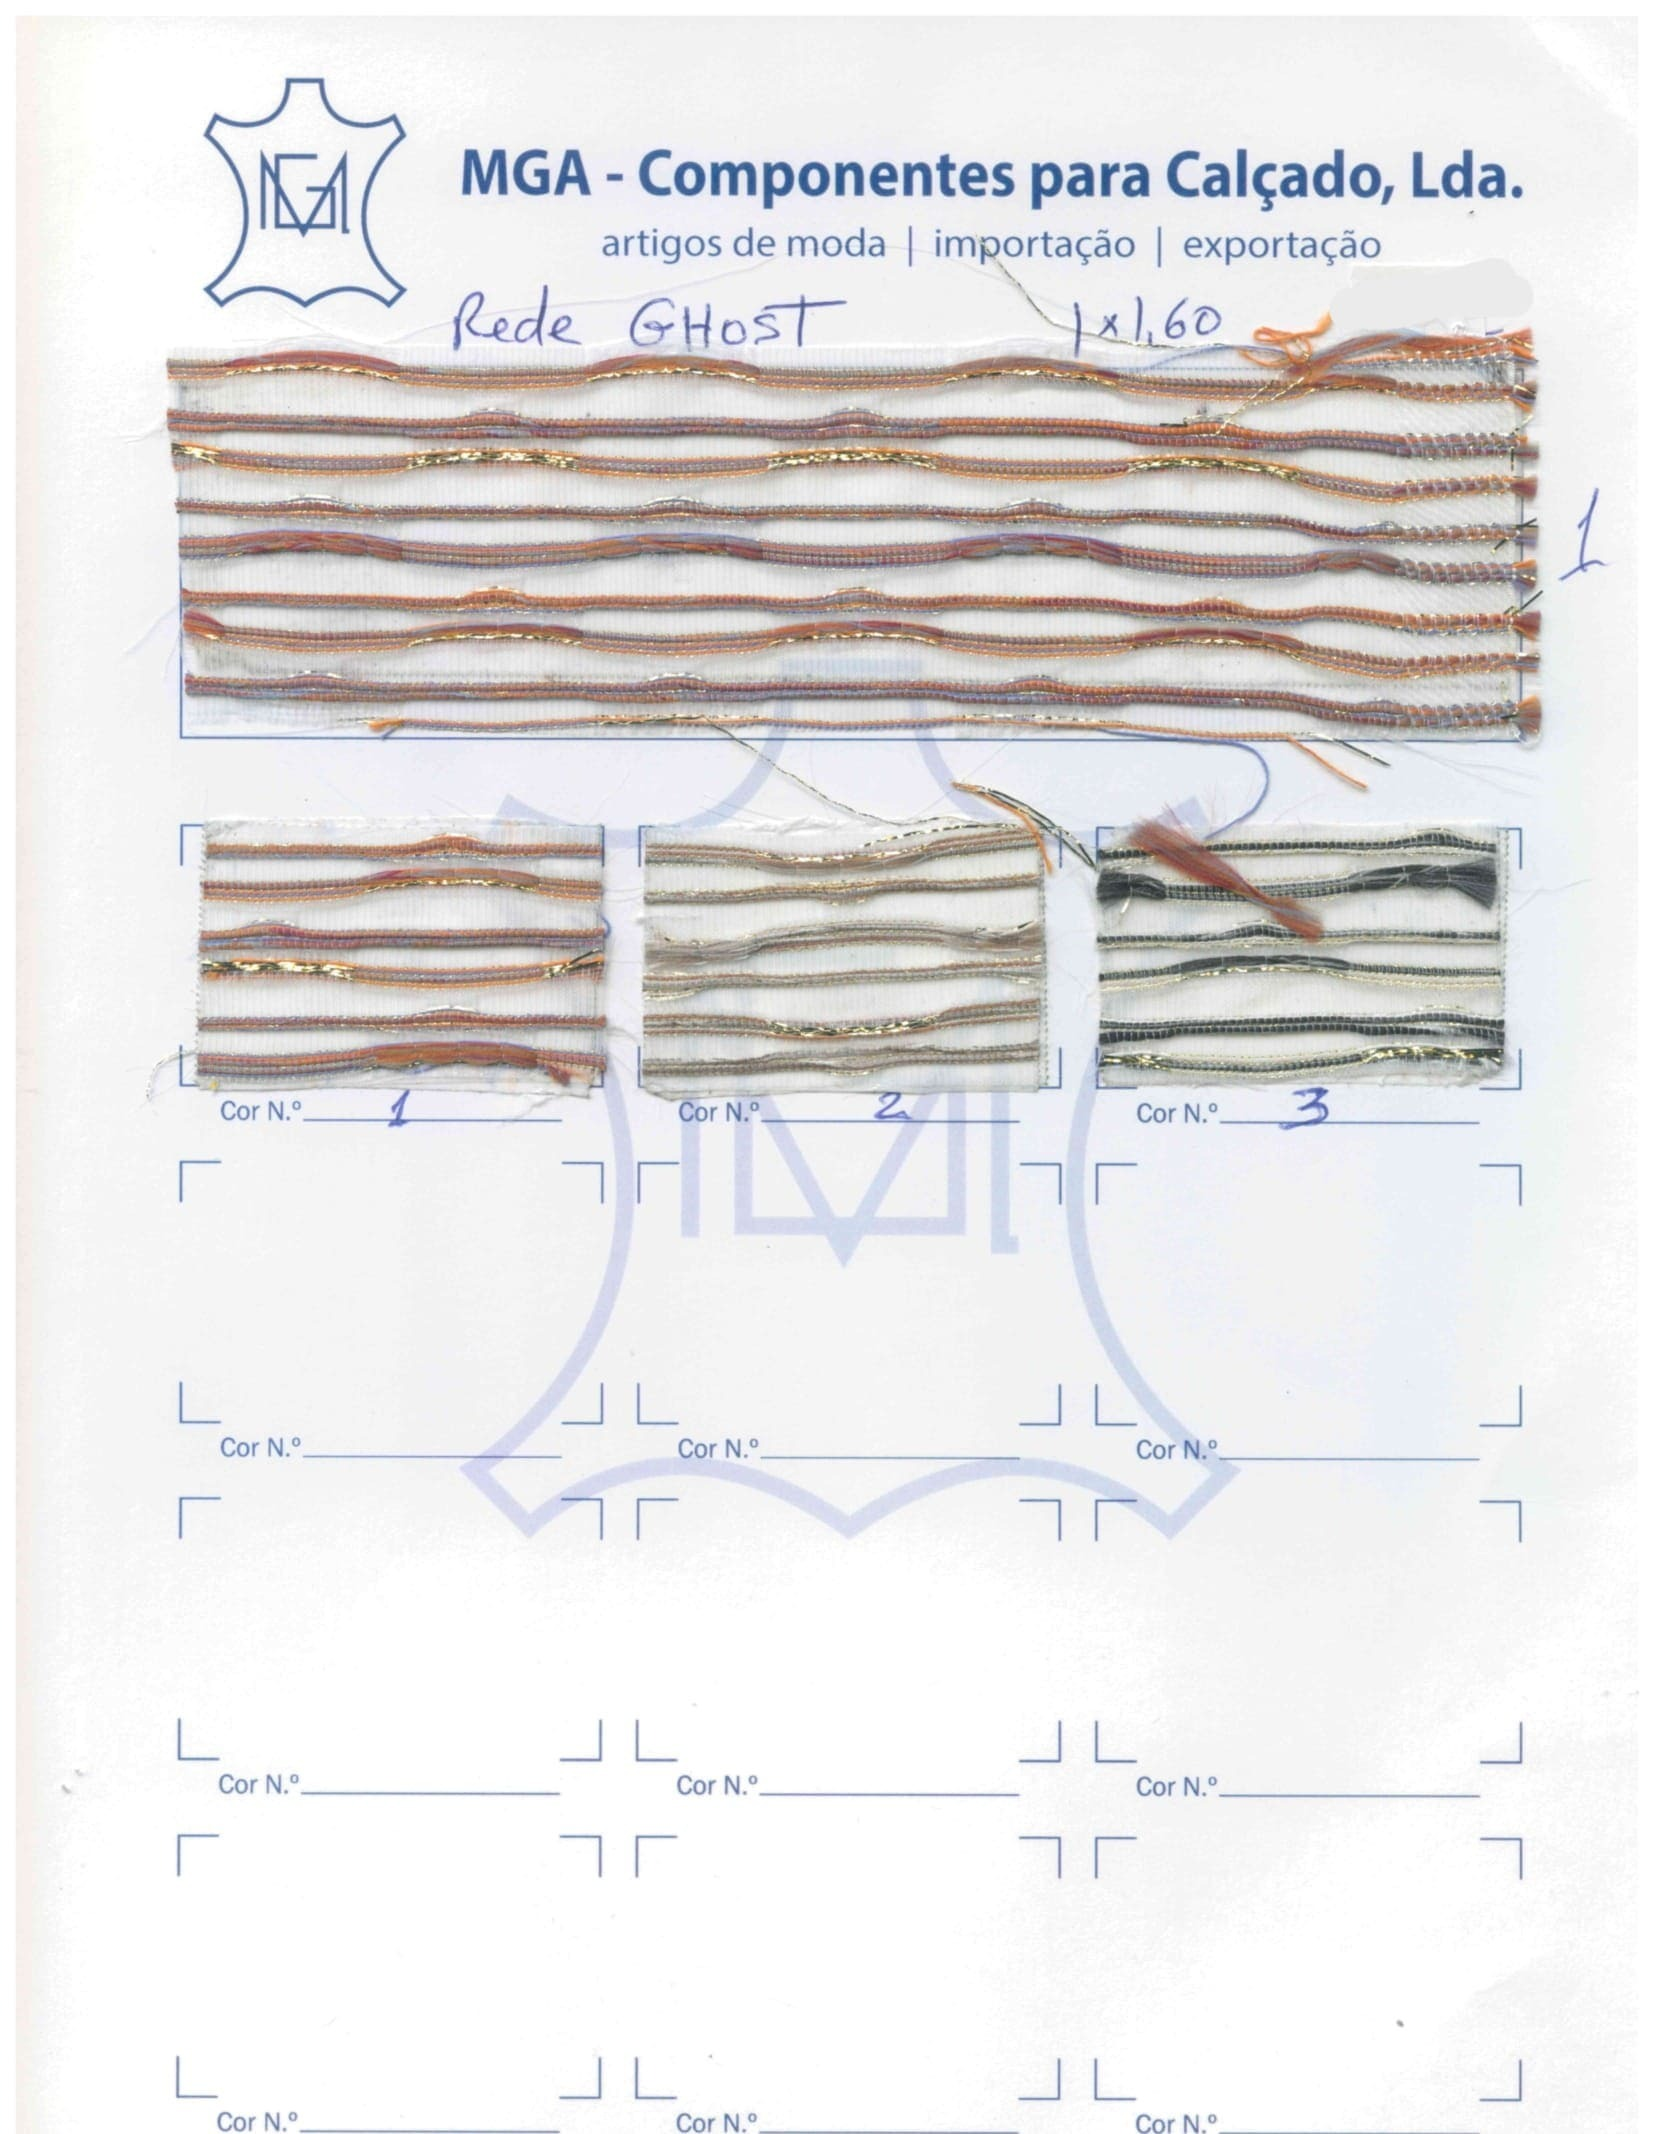 MGA
MGA - Componentes para Calçado, Lda.
artigos de moda | importação | exportação
Rede GHOST 1x1,60
1
Cor N.º 1 Cor N.º 2 Cor N.º 3
Cor N.º Cor N.º Cor N.º
Cor N.º Cor N.º Cor N.º
Cor N.º Cor N.º Cor N.º